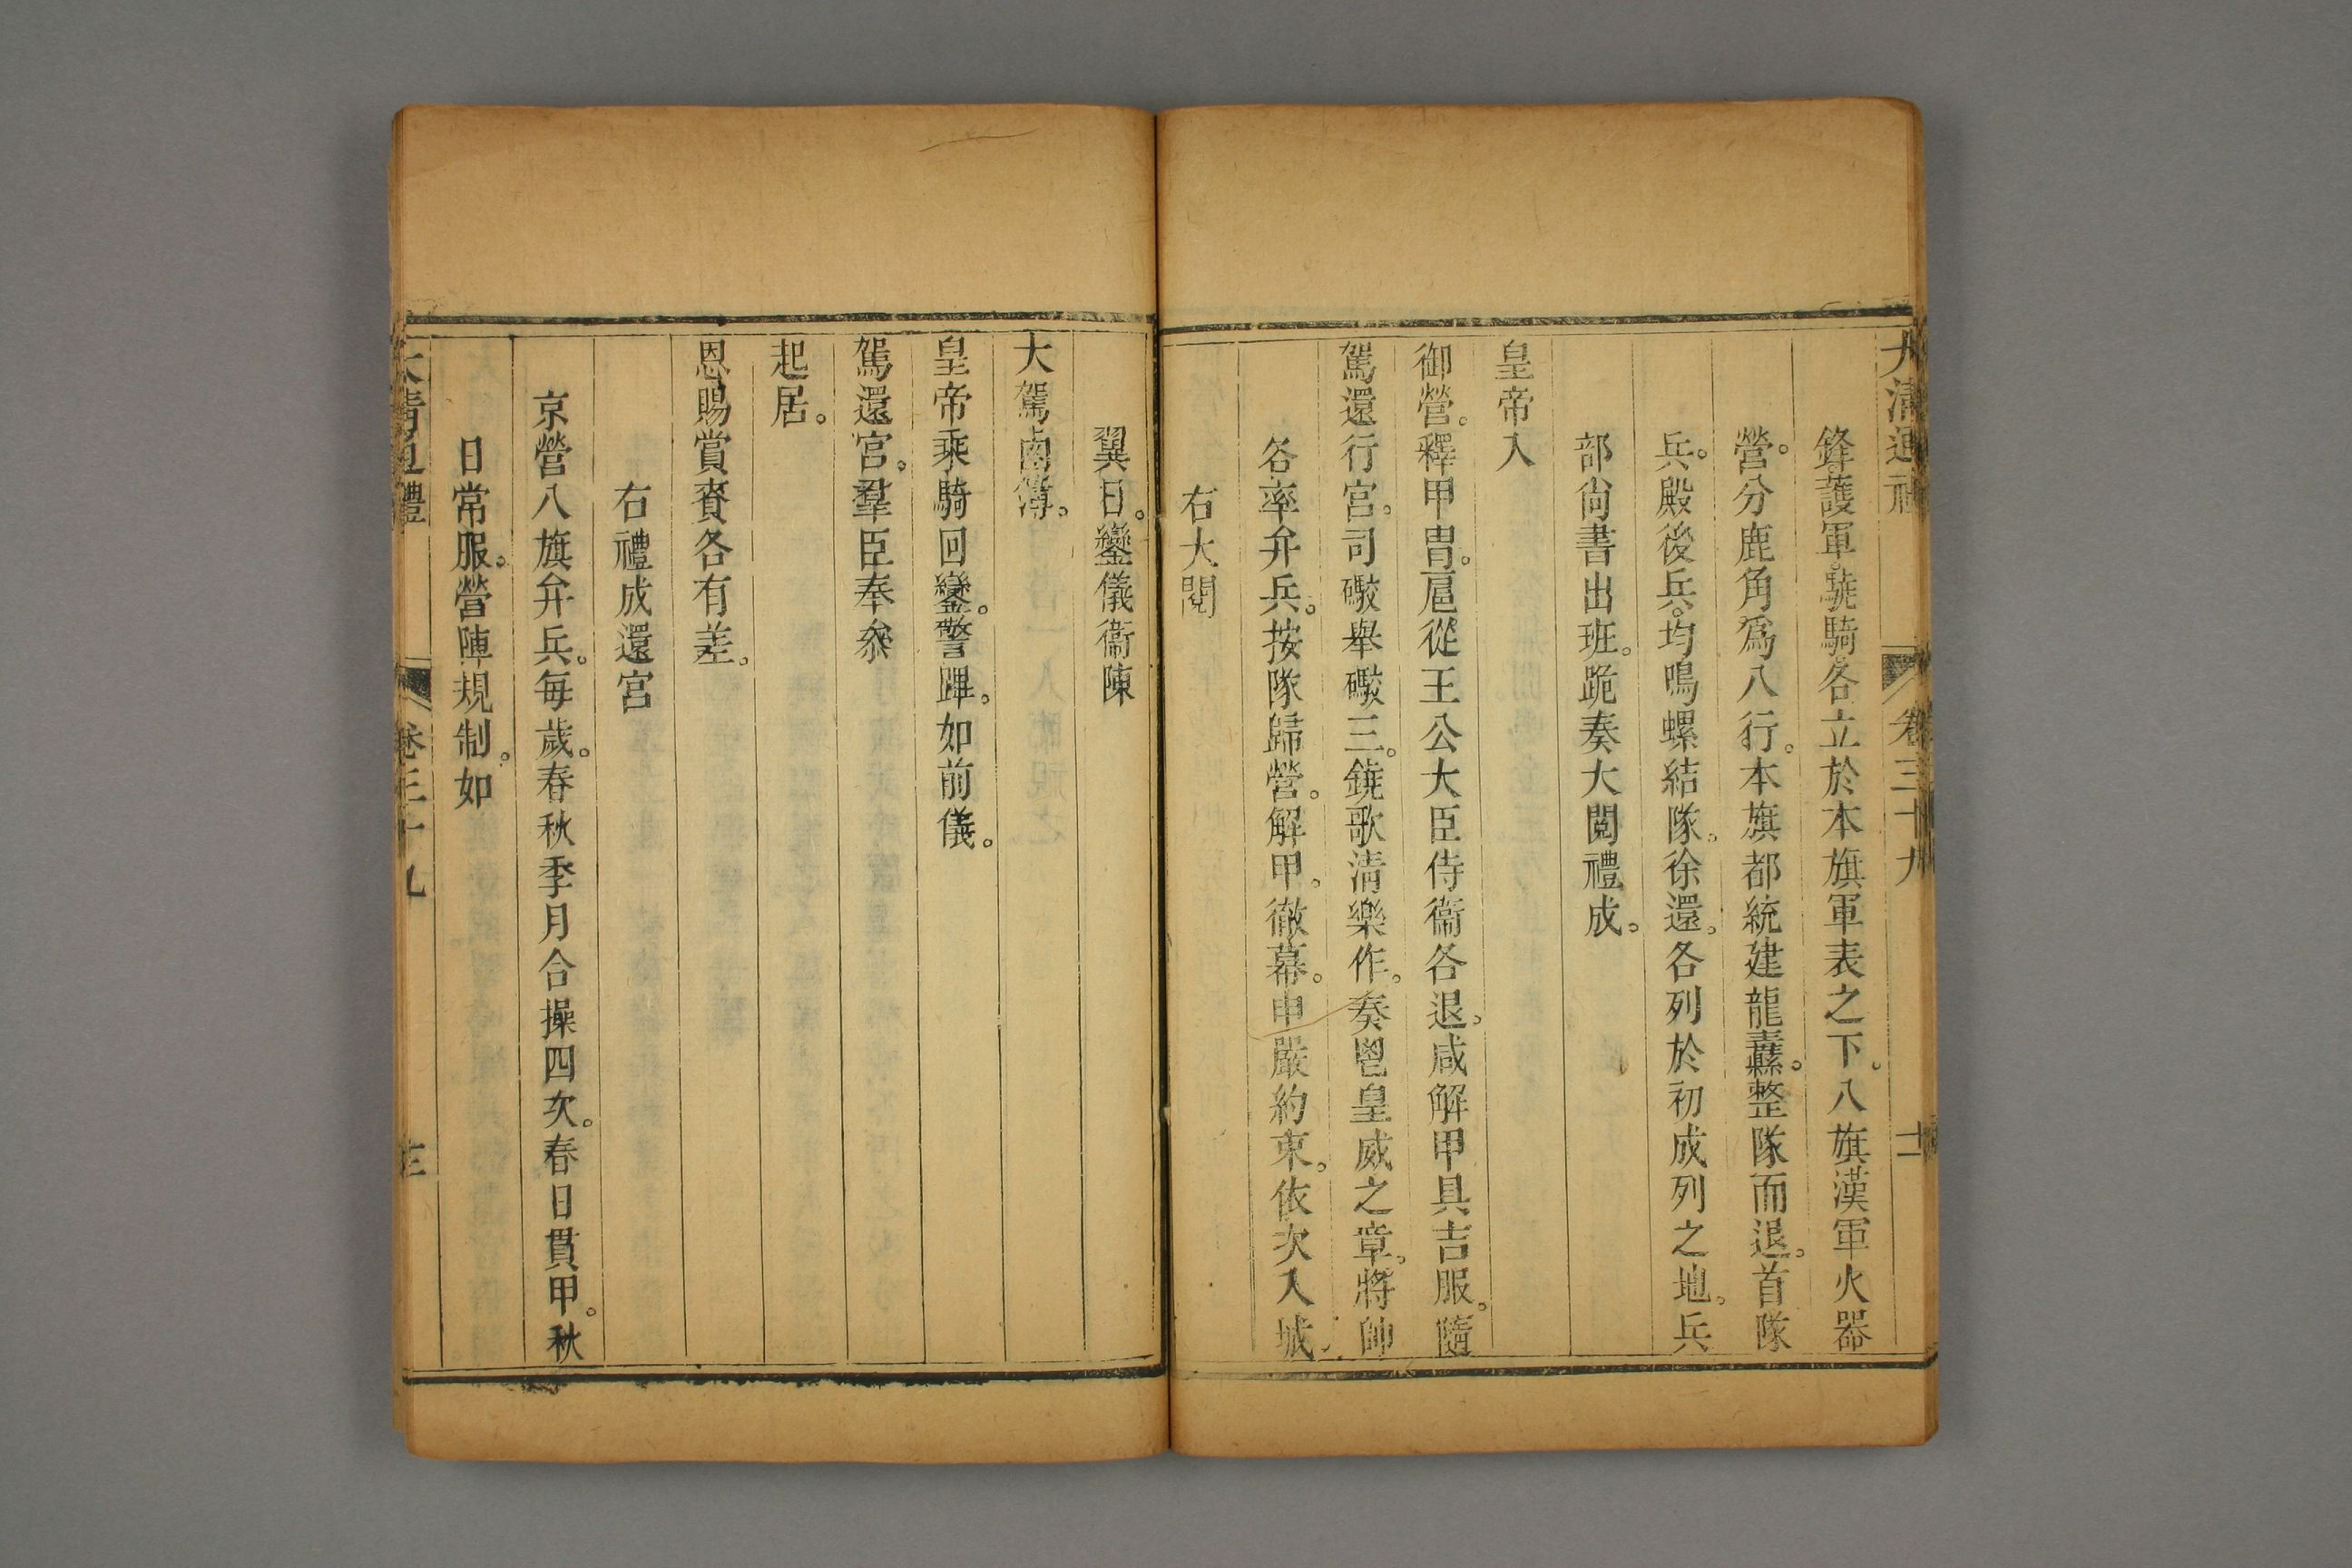 大清通禮 卷三十九 十二
鋒護軍驍騎各立於本旗軍表之下。八旗漢軍火器
營。分鹿角爲八行。本旗都統建龍纛。整隊而退。首隊
兵。殿後兵。均鳴螺結隊。徐還。各列於初成列之地。兵
部尚書出班。跪奏大閱禮成。
皇帝入
御營。釋甲冑。扈從王公大臣侍衞各退。咸解甲具吉服。隨
駕還行宮。司礮舉礮三。鐃歌淸樂作。奏鬯皇威之章。將帥
各率弁兵。按隊歸營。解甲。徹幕。申嚴約束。依次入城。
右大閱
翼日。鑾儀衞陳
大駕鹵簿。
皇帝乘騎回鑾。警蹕。如前儀。
駕還宮。羣臣奉叅
起居。
恩賜賞賚各有差。
右禮成還宮
京營八旗弁兵。每歲。春秋季月合操四次。春日貫甲。秋
日常服。營陣規制。如
大清通禮 卷三十九